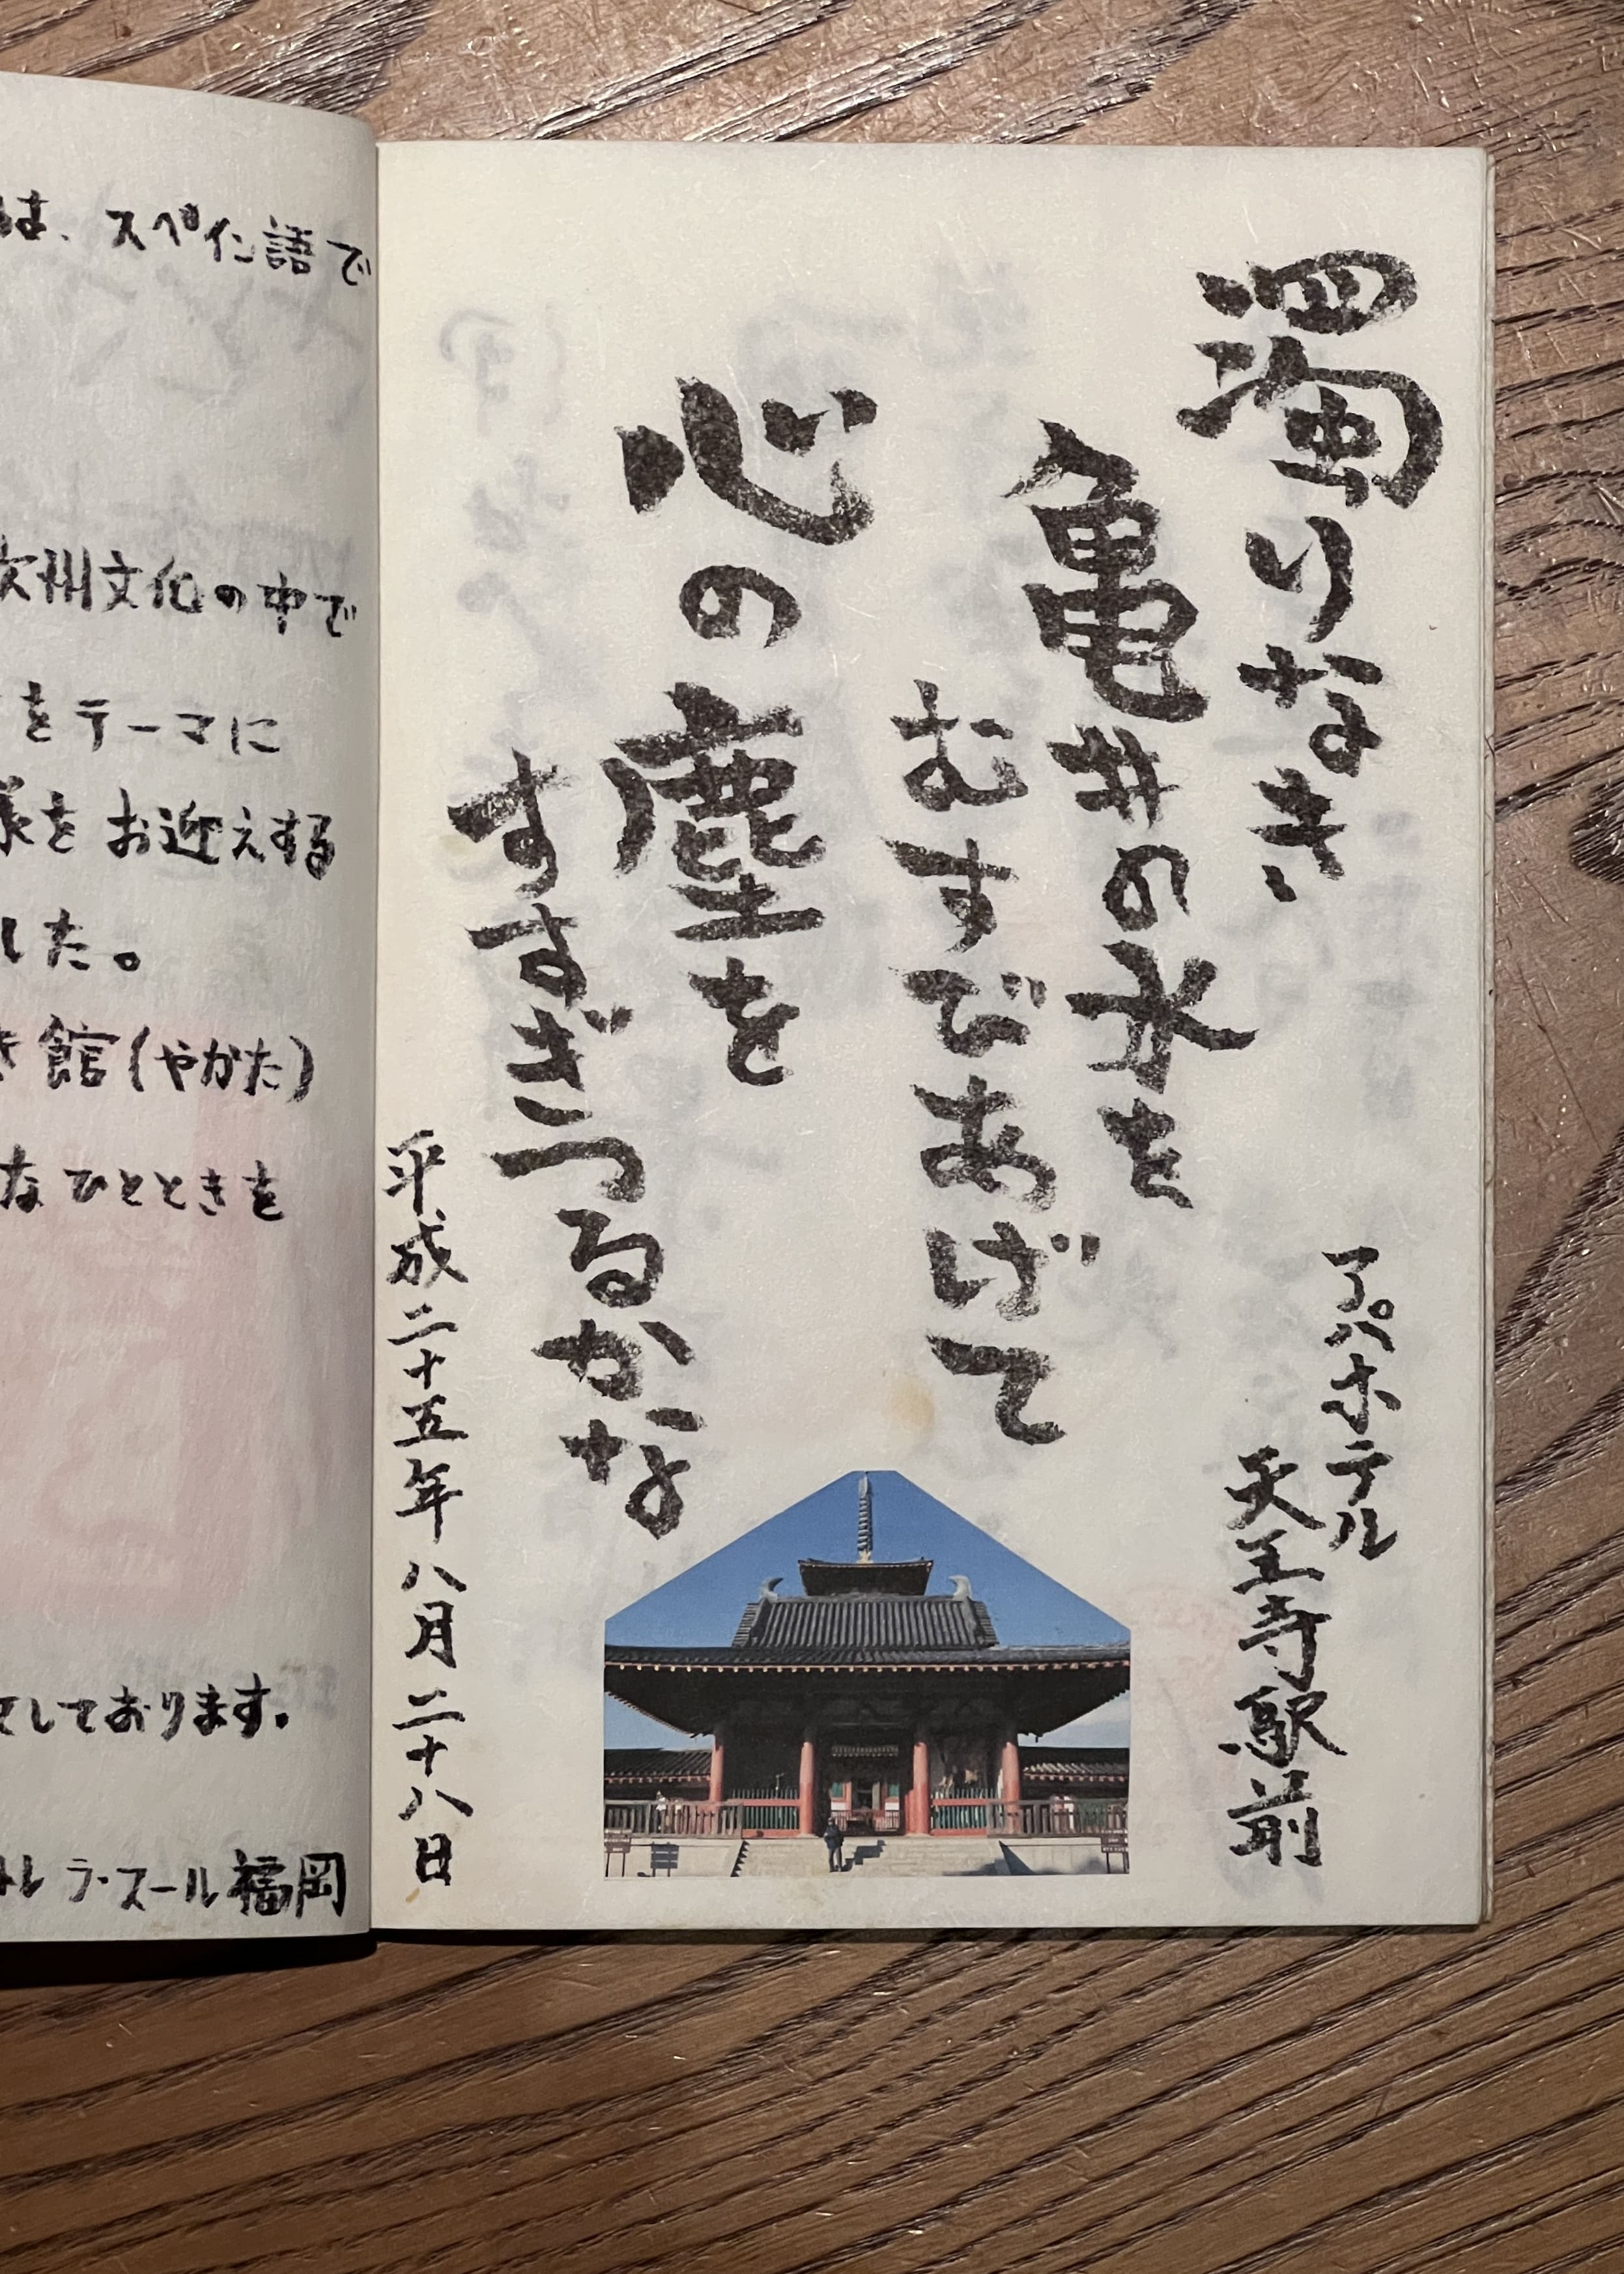 は、スペイン語で
州文化の中で
をテーマに
をお迎えする
した。
館(やかた)
なひとときを
しております。
ラ・スール福岡
濁りなき
亀井の水を
むすびあげて
心の塵を
すすぎつるかな
アパホテル
天王寺駅前
平成二十五年八月二十八日